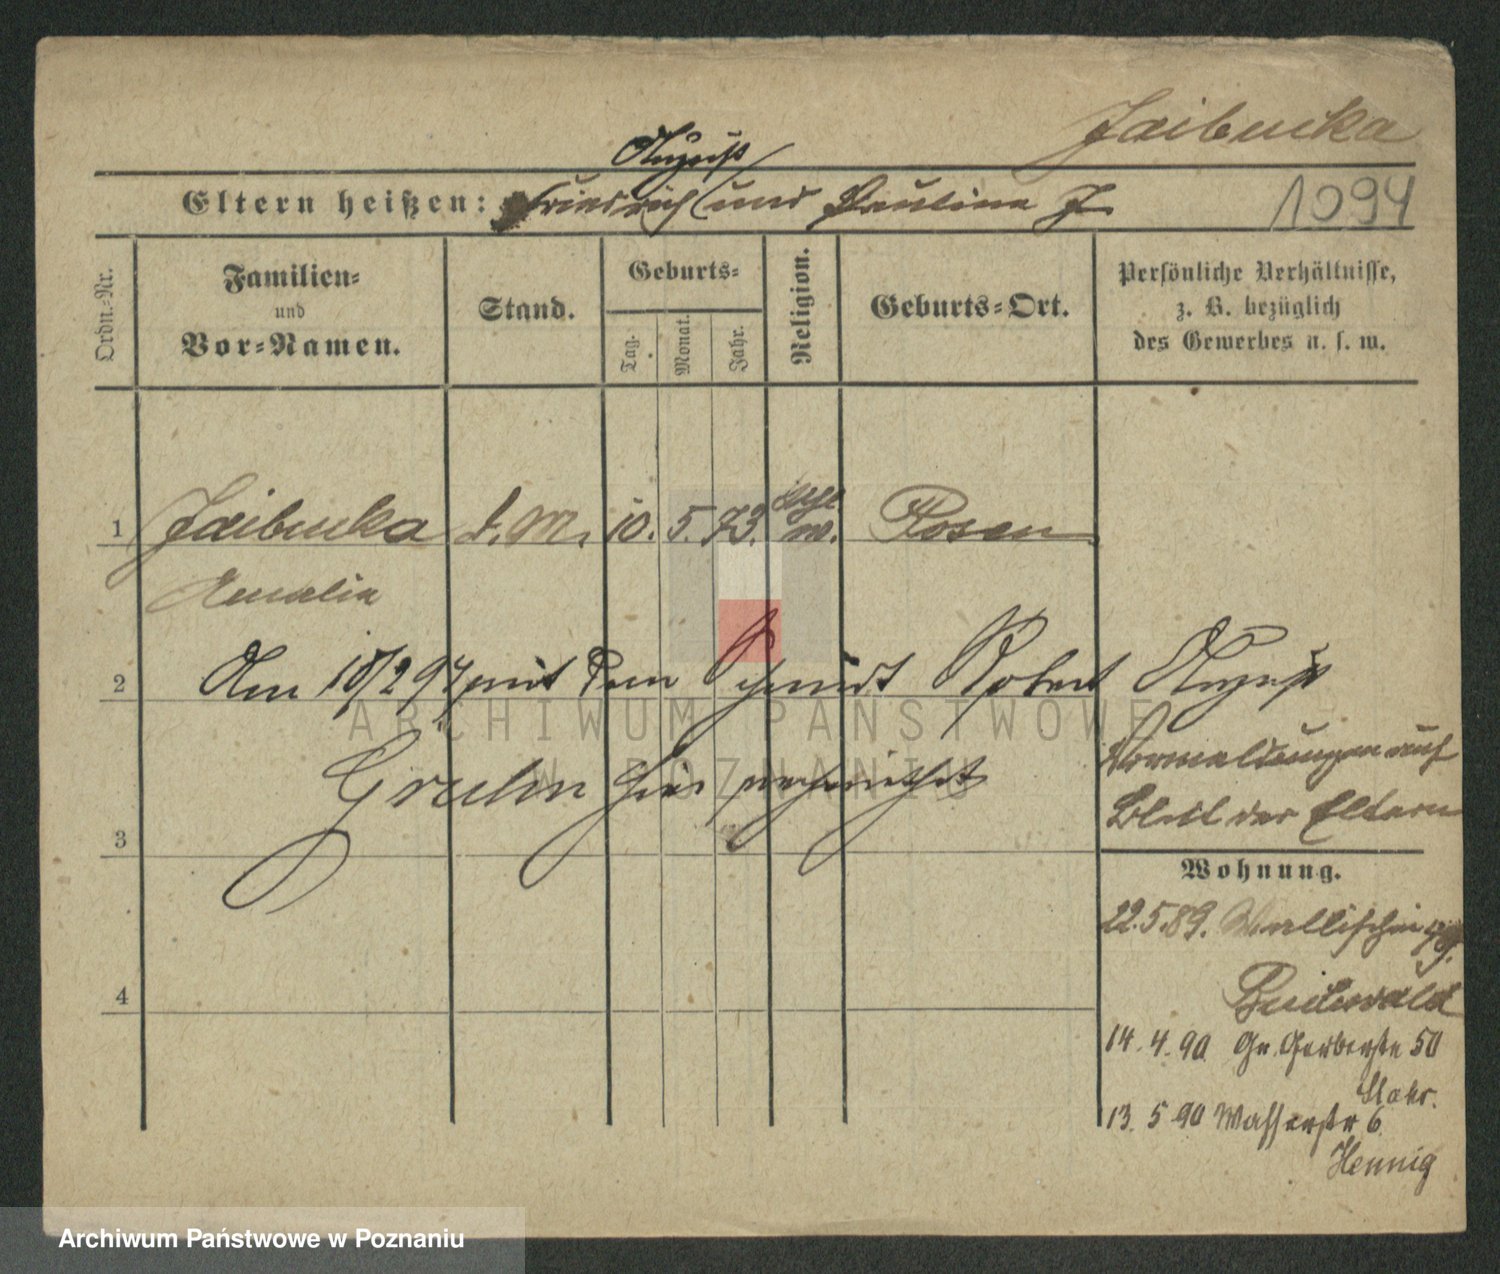 Jaibucka
August
Eltern heißen: Friedrich und Pauline J.
1094
Ordn.-Nr.
Familien-
und
Vor-Namen.
Stand.
Geburts-
Tag.
Monat.
Jahr.
Religion.
Geburts-Ort.
Persönliche Verhältnisse,
z. B. bezüglich
des Gewerbes u. s. w.
1 Jaibucka d. M. 10. 5. 73. w. Posen
Amalie
2 Am 10/2 97 mit dem Schmidt Robert August
Gruhn hier verheirathet
3
4
Vormeldungen auf
Blatt der Eltern
Wohnung.
22.5.89. Wallischei
Buchwald
14. 4. 90 Gr. Gerberstr 50
13. 5 90 Wasserstr 6.
Hennig
ARCHIWUM PAŃSTWOWE
W POZNANIU
Archiwum Państwowe w Poznaniu